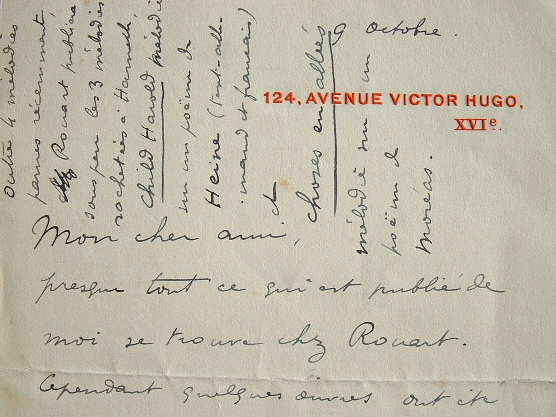 9 octobre.
124, AVENUE VICTOR HUGO,
XVIe.
Mon cher ami,
presque tout ce qui est publié de
moi se trouve chez Rouart.
Cependant quelques œuvres ont été
Outre 4 mélodies
parues récemment
Rouart publiera
sous peu les 3 mélodies
rachetées à Hamelle
Child Harold mélodie
sur un poëm de
Heine (texte alle-
mand et français)
et
choses en allées
mélodie sur un
poëm de
Moréas.